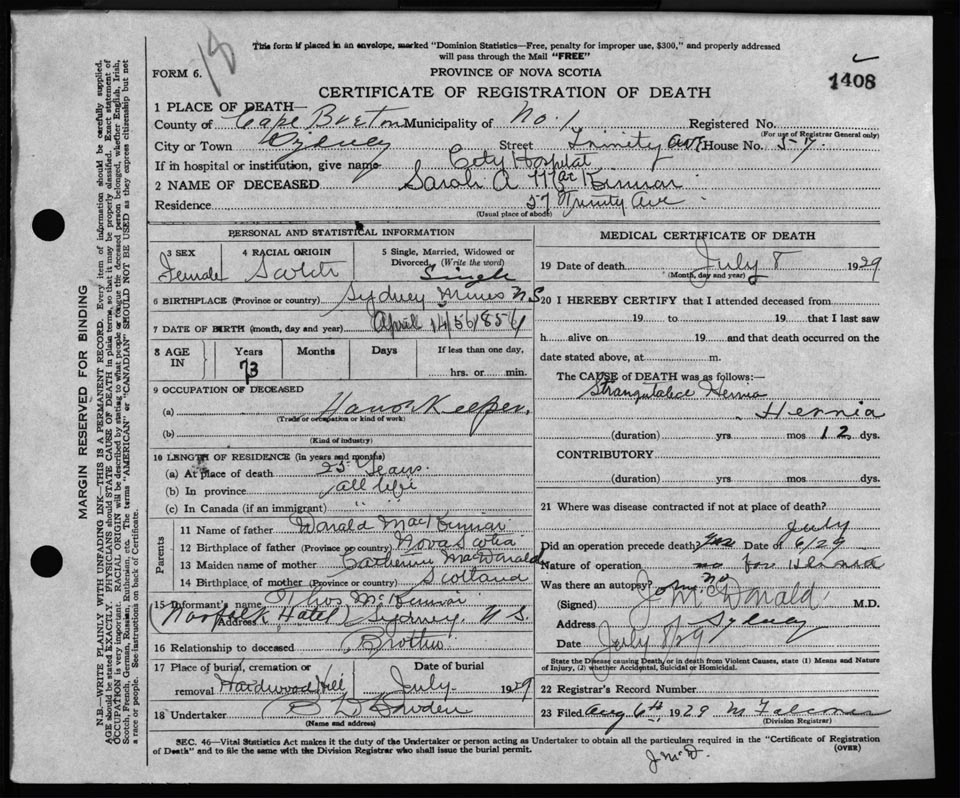 18
This form if placed in an envelope, marked "Dominion Statistics—Free, penalty for improper use, $300," and properly addressed
will pass through the Mail "FREE"
FORM 6.
PROVINCE OF NOVA SCOTIA
1408
CERTIFICATE OF REGISTRATION OF DEATH
1 PLACE OF DEATH—
County of Cape Breton Municipality of No. 1 Registered No.
(For use of Registrar General only)
City or Town Sydney Street Trinity Ave House No. 57
If in hospital or institution, give name City Hospital
2 NAME OF DECEASED Sarah A MacKinnon
Residence 57 Trinity Ave
(Usual place of abode)
PERSONAL AND STATISTICAL INFORMATION
3 SEX Female
4 RACIAL ORIGIN Scotch
5 Single, Married, Widowed or Divorced, (Write the word) Single
6 BIRTHPLACE (Province or country) Sydney Mines N.S.
7 DATE OF BIRTH (month, day and year) April
8 AGE IN
Years 73 Months Days If less than one day, hrs. or min.
9 OCCUPATION OF DECEASED
(a) House Keeper.
(Trade or occupation or kind of work)
(b)
(Kind of industry)
10 LENGTH OF RESIDENCE (in years and months)
(a) At place of death 25 Years.
(b) In province all life
(c) In Canada (if an immigrant) " "
Parents
11 Name of father Donald MacKinnon
12 Birthplace of father (Province or country) Nova Scotia
13 Maiden name of mother Catherine MacDonald
14 Birthplace of mother (Province or country) Scotland
15 Informant's name Thos McKinnon
Address Norfolk Hotel Sydney, N.S.
16 Relationship to deceased Brother
17 Place of burial, cremation or removal Hardwood Hill
Date of burial July 1929
18 Undertaker
(Name and address)
MEDICAL CERTIFICATE OF DEATH
19 Date of death July 8 1929
(Month, day and year)
20 I HEREBY CERTIFY that I attended deceased from
19 to 19 that I last saw
h alive on 19 and that death occurred on the
date stated above, at m.
The CAUSE of DEATH was as follows:—
Hernia
Hernia
(duration) yrs mos 12 dys.
CONTRIBUTORY
(duration) yrs mos dys.
21 Where was disease contracted if not at place of death?
Did an operation precede death? Yes Date of July 6/29
Nature of operation for Hernia
Was there an autopsy? no
(Signed) J McDonald M.D.
Address Sydney
Date July 8/29
State the Disease causing Death, or in death from Violent Causes, state (1) Means and Nature
of Injury, (2) whether Accidental, Suicidal or Homicidal.
22 Registrar's Record Number
23 Filed Aug 6th 1929
(Division Registrar)
SEC. 46—Vital Statistics Act makes it the duty of the Undertaker or person acting as Undertaker to obtain all the particulars required in the "Certificate of Registration
of Death" and to file the same with the Division Registrar who shall issue the burial permit.
(OVER)
J McD.
MARGIN RESERVED FOR BINDING
N.B.—WRITE PLAINLY WITH UNFADING INK—THIS IS A PERMANENT RECORD. Every item of information should be carefully supplied.
AGE should be stated EXACTLY. PHYSICIANS should STATE CAUSE OF DEATH in plain terms, so that it may be properly classified. Exact statement of
OCCUPATION is very important. RACIAL ORIGIN will be described by stating to what people or tongue the deceased person belonged, whether English, Irish,
Scotch, French, German, Russian, Ruthenian, etc. The terms "AMERICAN" or "CANADIAN" SHOULD NOT BE USED as they express citizenship but not
a race or people. See instructions on back of Certificate.